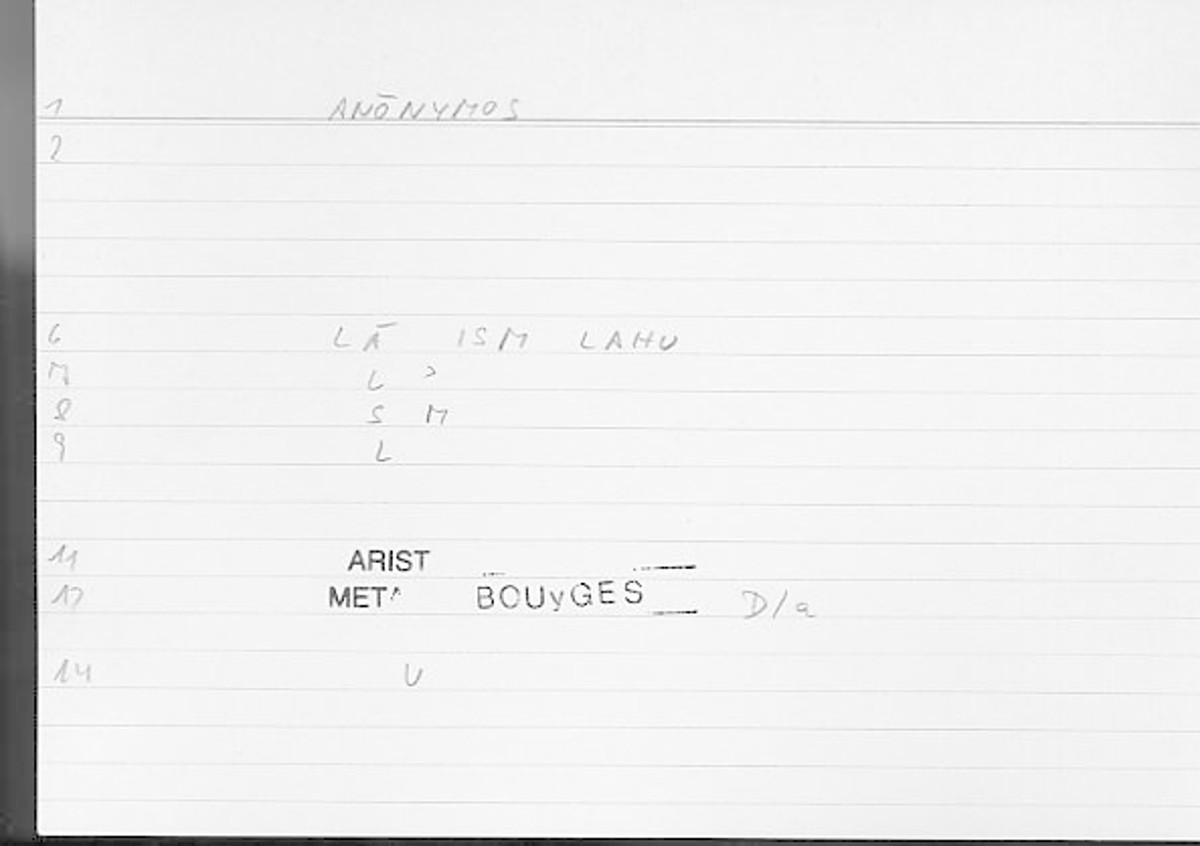 1 ANŌNYMOS
2
6 LĀ ISM LAHU
7 L ʾ
8 S M
9 L
11 ARIST
12 META BOUyGES D/a
14 U